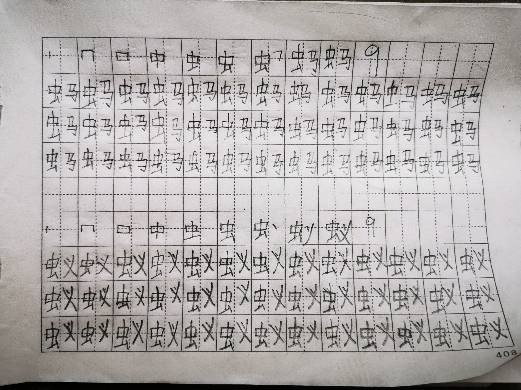 丨 冂 口 中 虫 虫 虫㇕ 蚂 蚂 9
蚂 蚂 蚂 蚂 蚂 蚂 蚂 蚂 蚂 蚂 蚂 蚂 蚂
蚂 蚂 蚂 蚂 蚂 蚂 蚂 蚂 蚂 蚂 蚂 蚂 蚂
蚂 蚂 蚂 蚂 蚂 蚂 蚂 蚂 蚂 蚂 蚂 蚂 蚂
丨 冂 口 中 虫 虫 虫丶 蚁 蚁 9
蚁 蚁 蚁 蚁 蚁 蚁 蚁 蚁 蚁 蚁 蚁 蚁 蚁
蚁 蚁 蚁 蚁 蚁 蚁 蚁 蚁 蚁 蚁 蚁 蚁 蚁
蚁 蚁 蚁 蚁 蚁 蚁 蚁 蚁 蚁 蚁 蚁 蚁 蚁